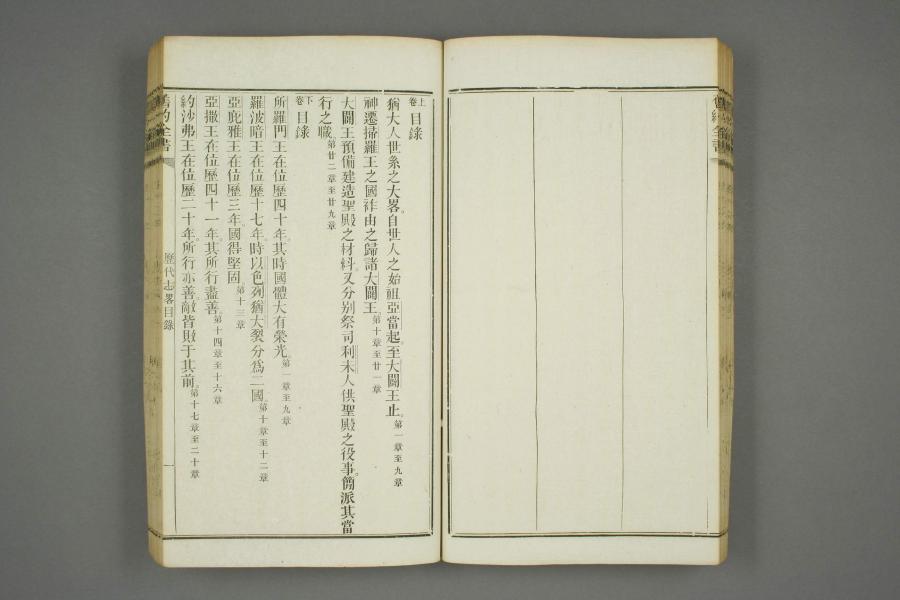 卷上目錄
猶大人世系之大畧自世人之始祖亞當起至大闢王止第一章至九章
神遷掃羅王之國祚由之歸諸大闢王第十章至廿一章
大闢王預備建造聖殿之材料又分別祭司利未人供聖殿之役事簡派其當
行之職第廿二章至廿九章
卷下目錄
所羅門王在位歷四十年其時國體大有榮光第一章至九章
羅波暗王在位歷十七年時以色列猶大裂分為二國第十章至十二章
亞庇雅王在位歷三年國得堅固第十三章
亞撒王在位歷四十一年其所行盡善第十四章至十六章
約沙弗王在位歷二十年所行亦善敵皆敗于其前第十七章至二十章
舊約全書
歷代志畧目錄
一